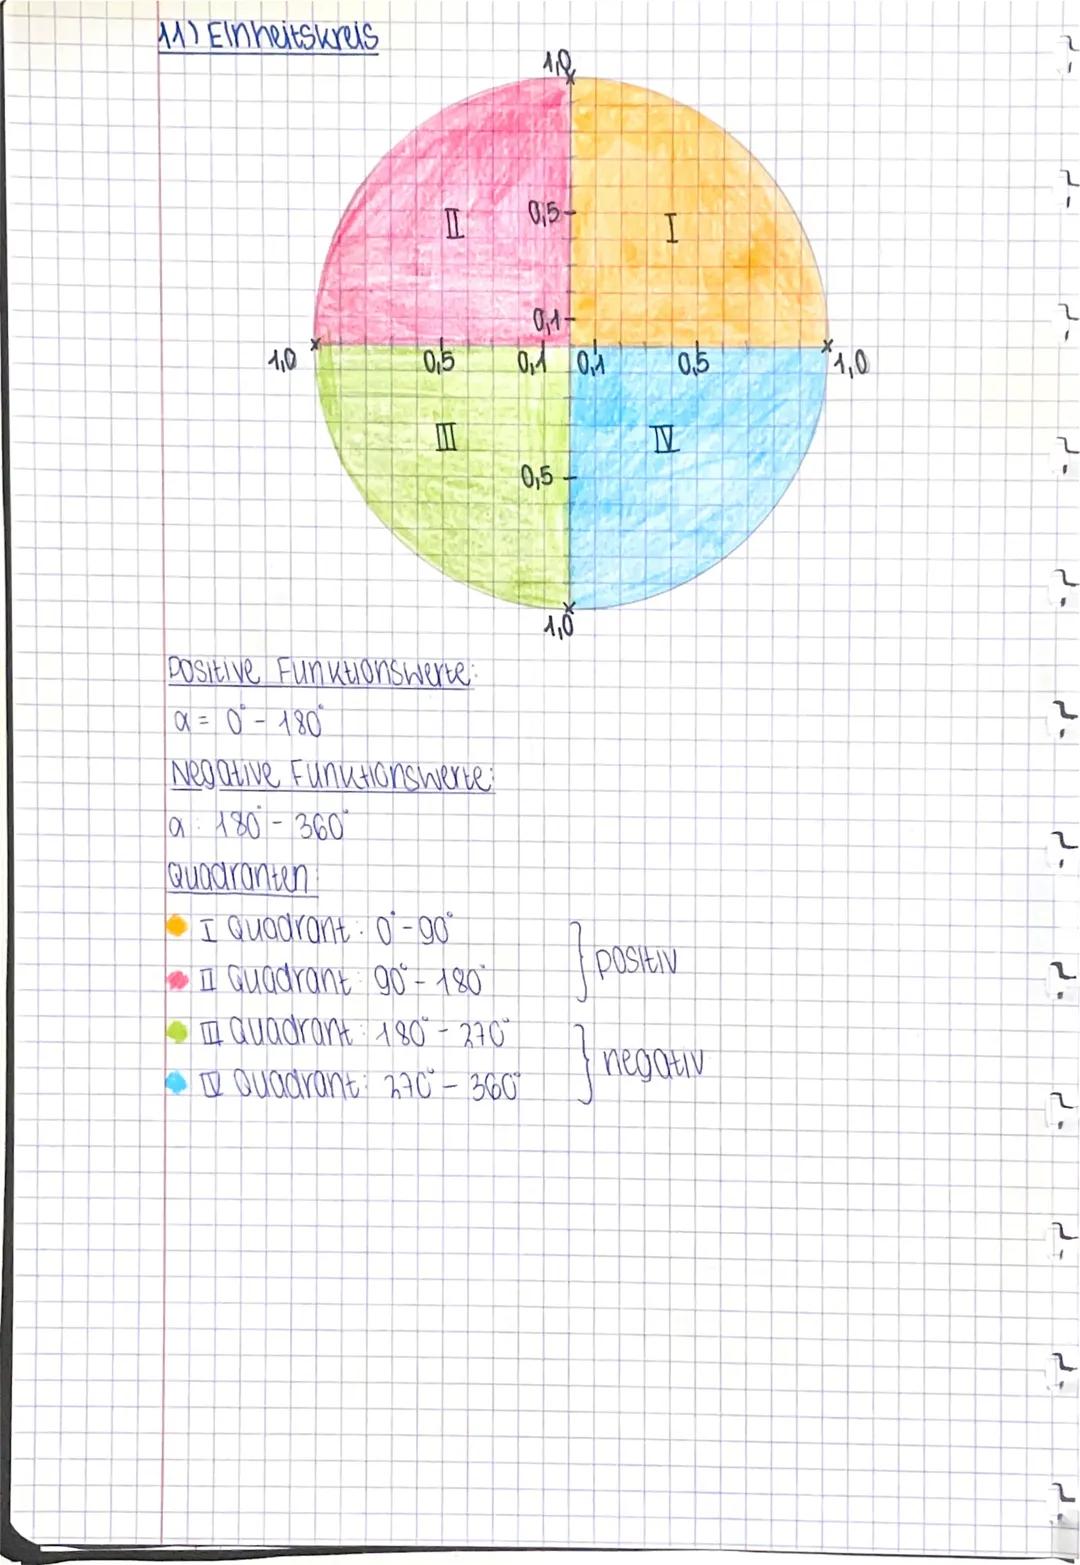 11) Einheitskreis
1,0
II
0,5
I
0,1
1,0
0,5
0,1
0,1
0,5
1,0
III
IV
0,5
1,0
Positive Funktionswerte:
α = 0° - 180°
Negative Funktionswerte:
α : 180° - 360°
Quadranten:
I Quadrant: 0° - 90°
} positiv
II Quadrant: 90° - 180°
III Quadrant: 180° - 270°
} negativ
IV Quadrant: 270° - 360°